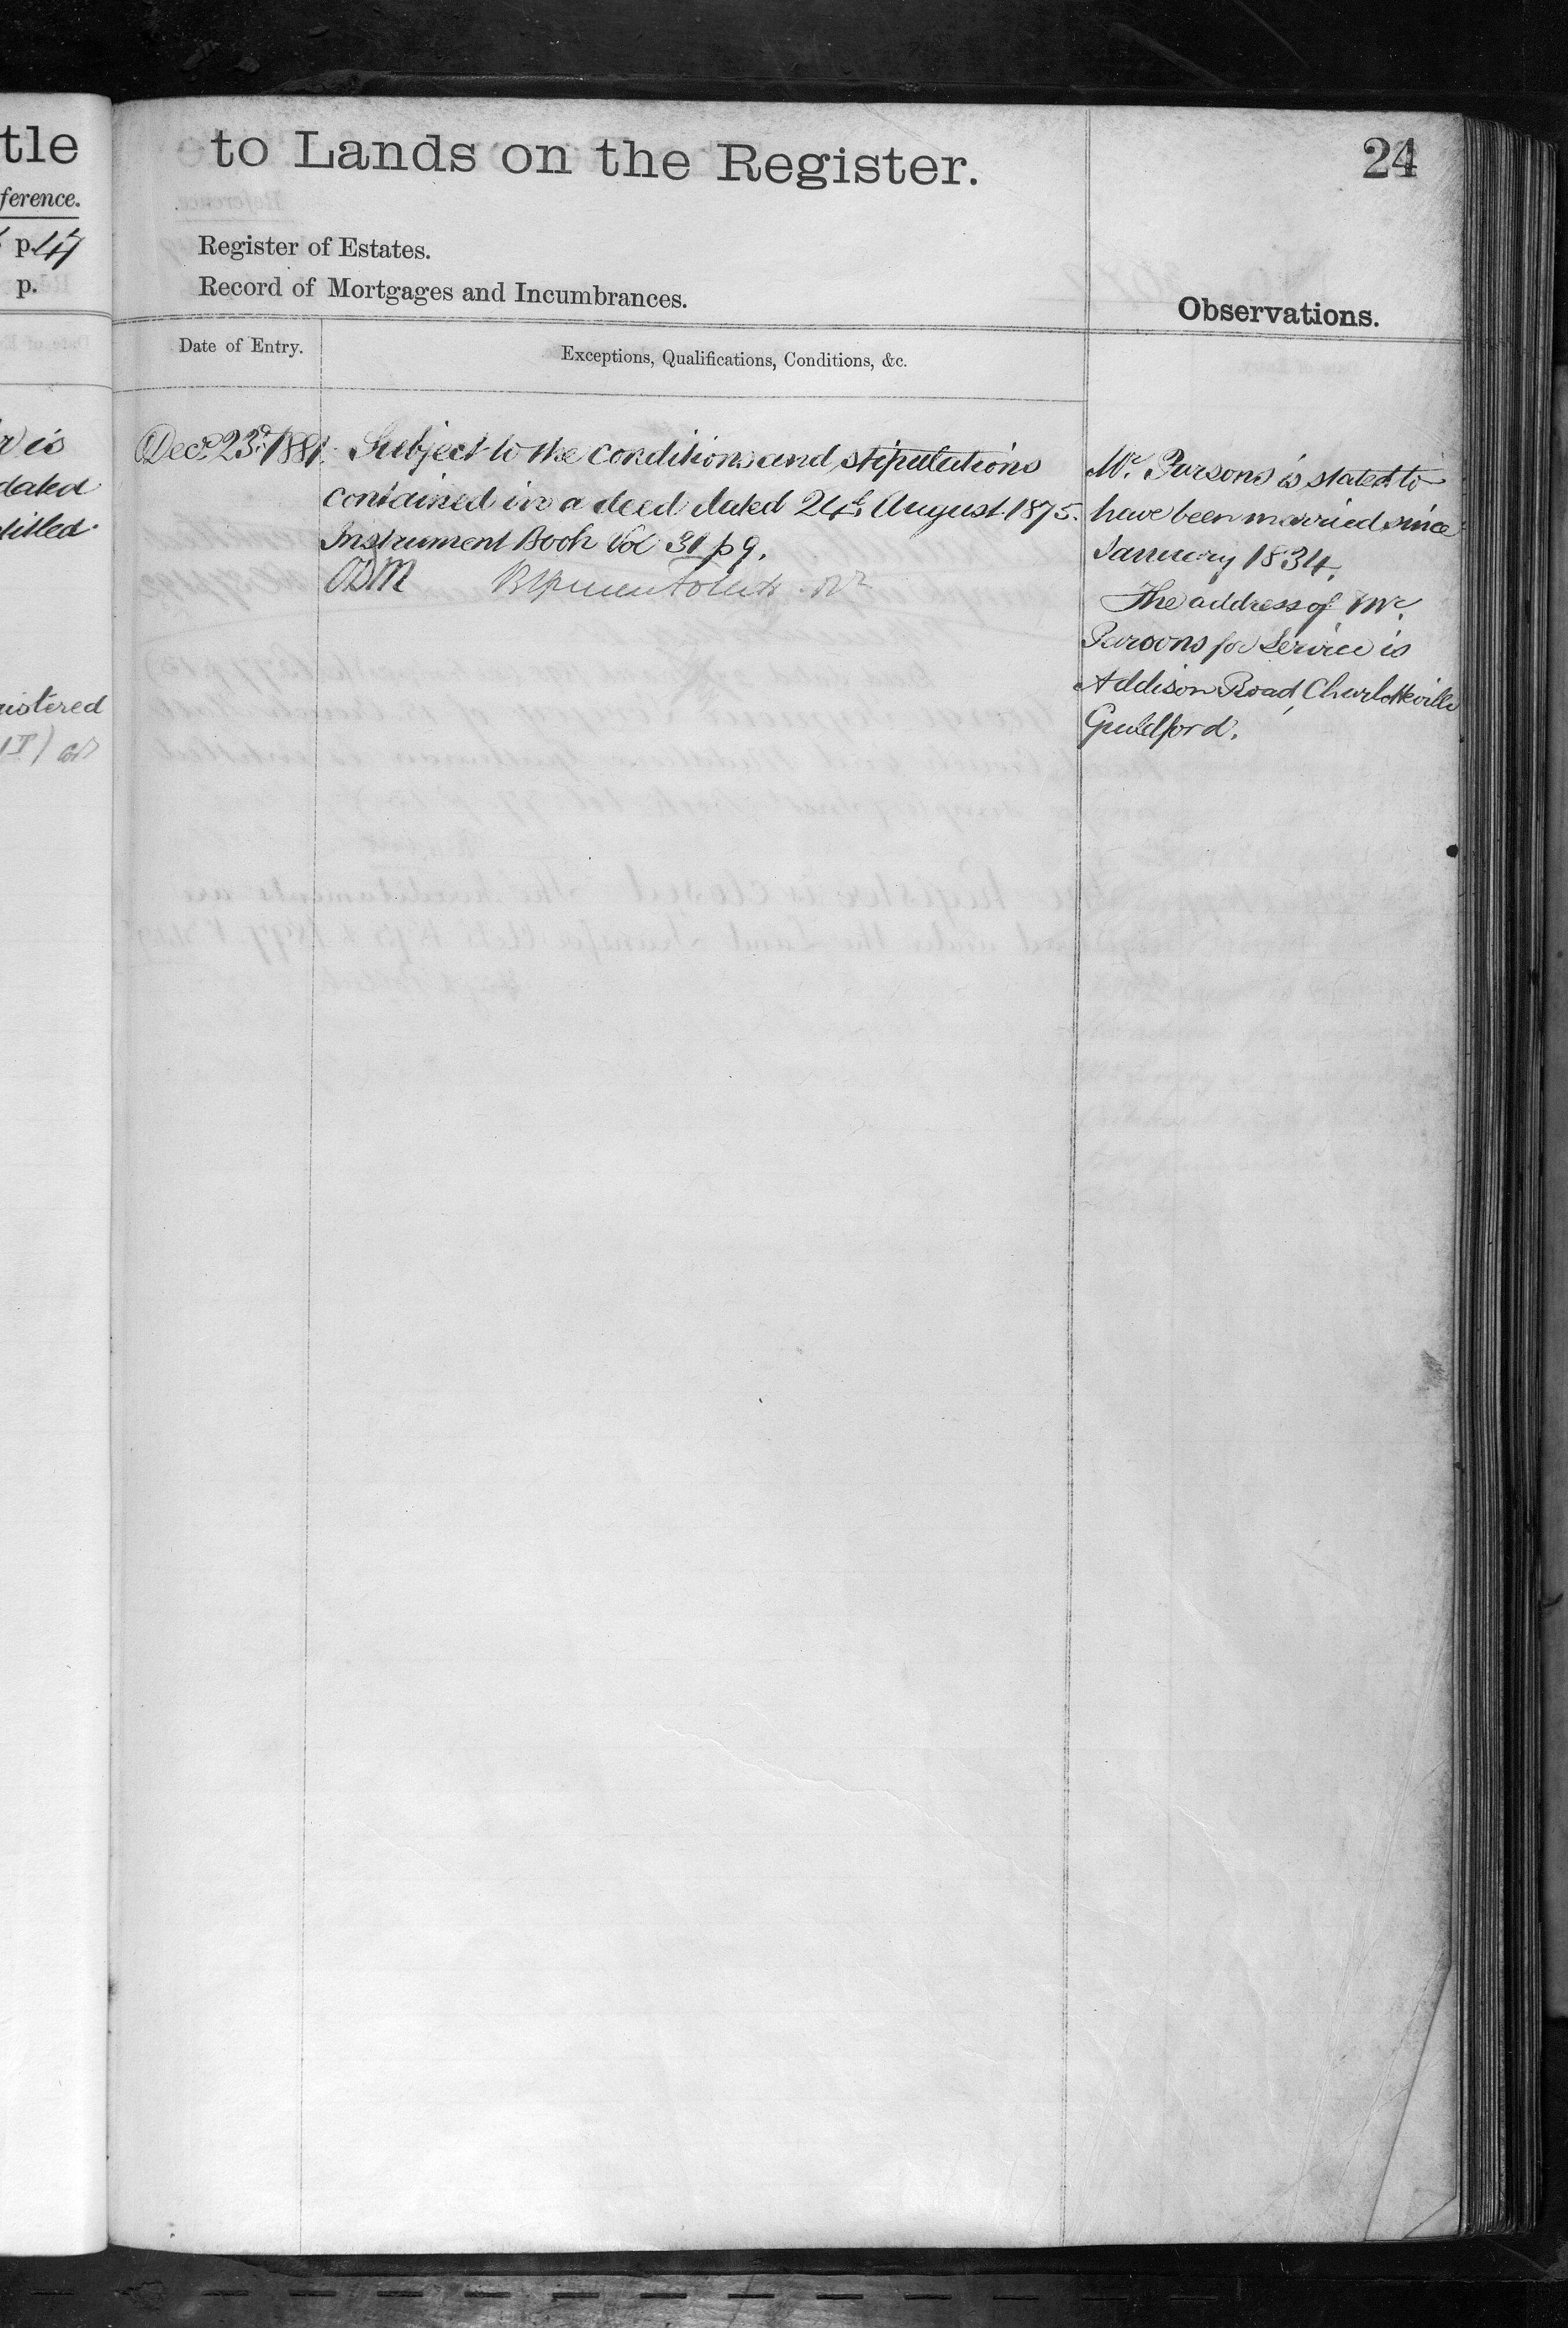 tle
ference.
p. 47
p.
r is
dated
titled
istered
to Lands on the Register.
24
Register of Estates.
Record of Mortgages and Incumbrances.
Observations.
Date of Entry.
Exceptions, Qualifications, Conditions, &c.
Decr. 23d. 1881. Subject to the conditions and stipulations
contained in a deed dated 24th August 1875.
Instrument Book Vol 31 p 9.
Mr. Parsons is stated to
have been married since
January 1834.
The address of Mr.
Parsons for Service is
Addison Road, Charlotteville
Guildford.